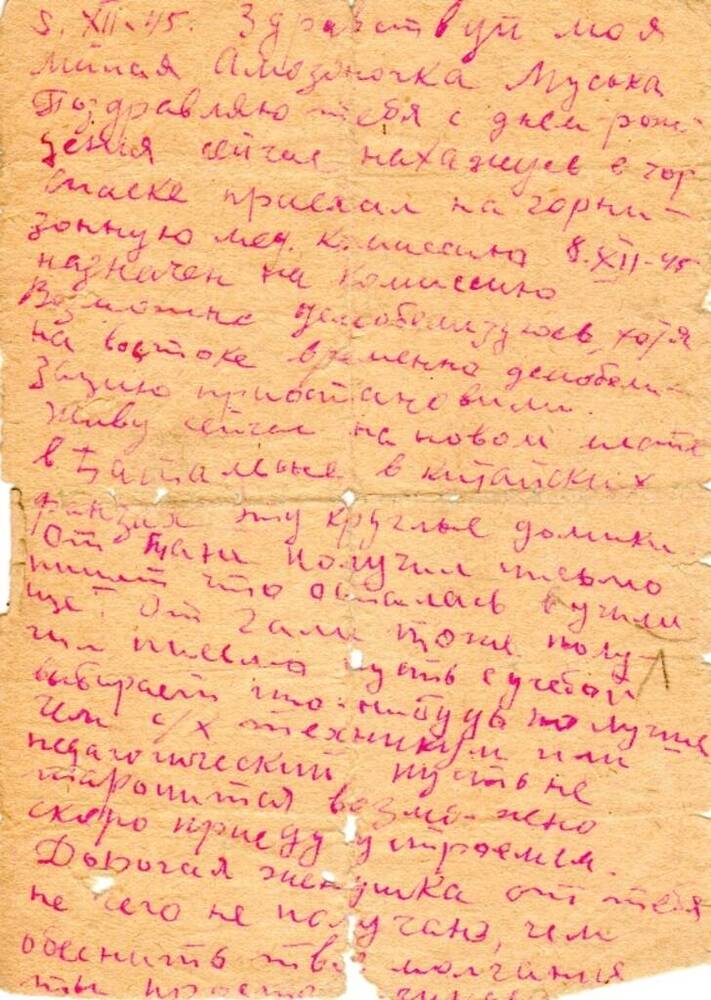 5. XII-45. Здравствуй моя
милая Амозоночка Муська
Поздравляю тебя с днем рож-
дения сейчас нахажусь в гор
Спаске приехал на горни-
зонную мед. комиссию 8.XII-45
назначен на комиссию
Возможно демобелизуюсь, хотя
на востоке временно демобели-
зацию приостановили.
Живу сейчас на новом месте
в китайских
фанзах эту круглые домики.
От Тани получил письмо
пишет что осталась в учили-
ще. От Гали тоже полу-
чил письмо пусть с учебой
выбирает что-нибудь получше
чем с/х техникум или
педагогический, пусть не
таропится возможено
скоро приеду устроемся.
Дорогая женушка от тебя
не чего не получаю, чем
обеснить твое молчания
ты просто